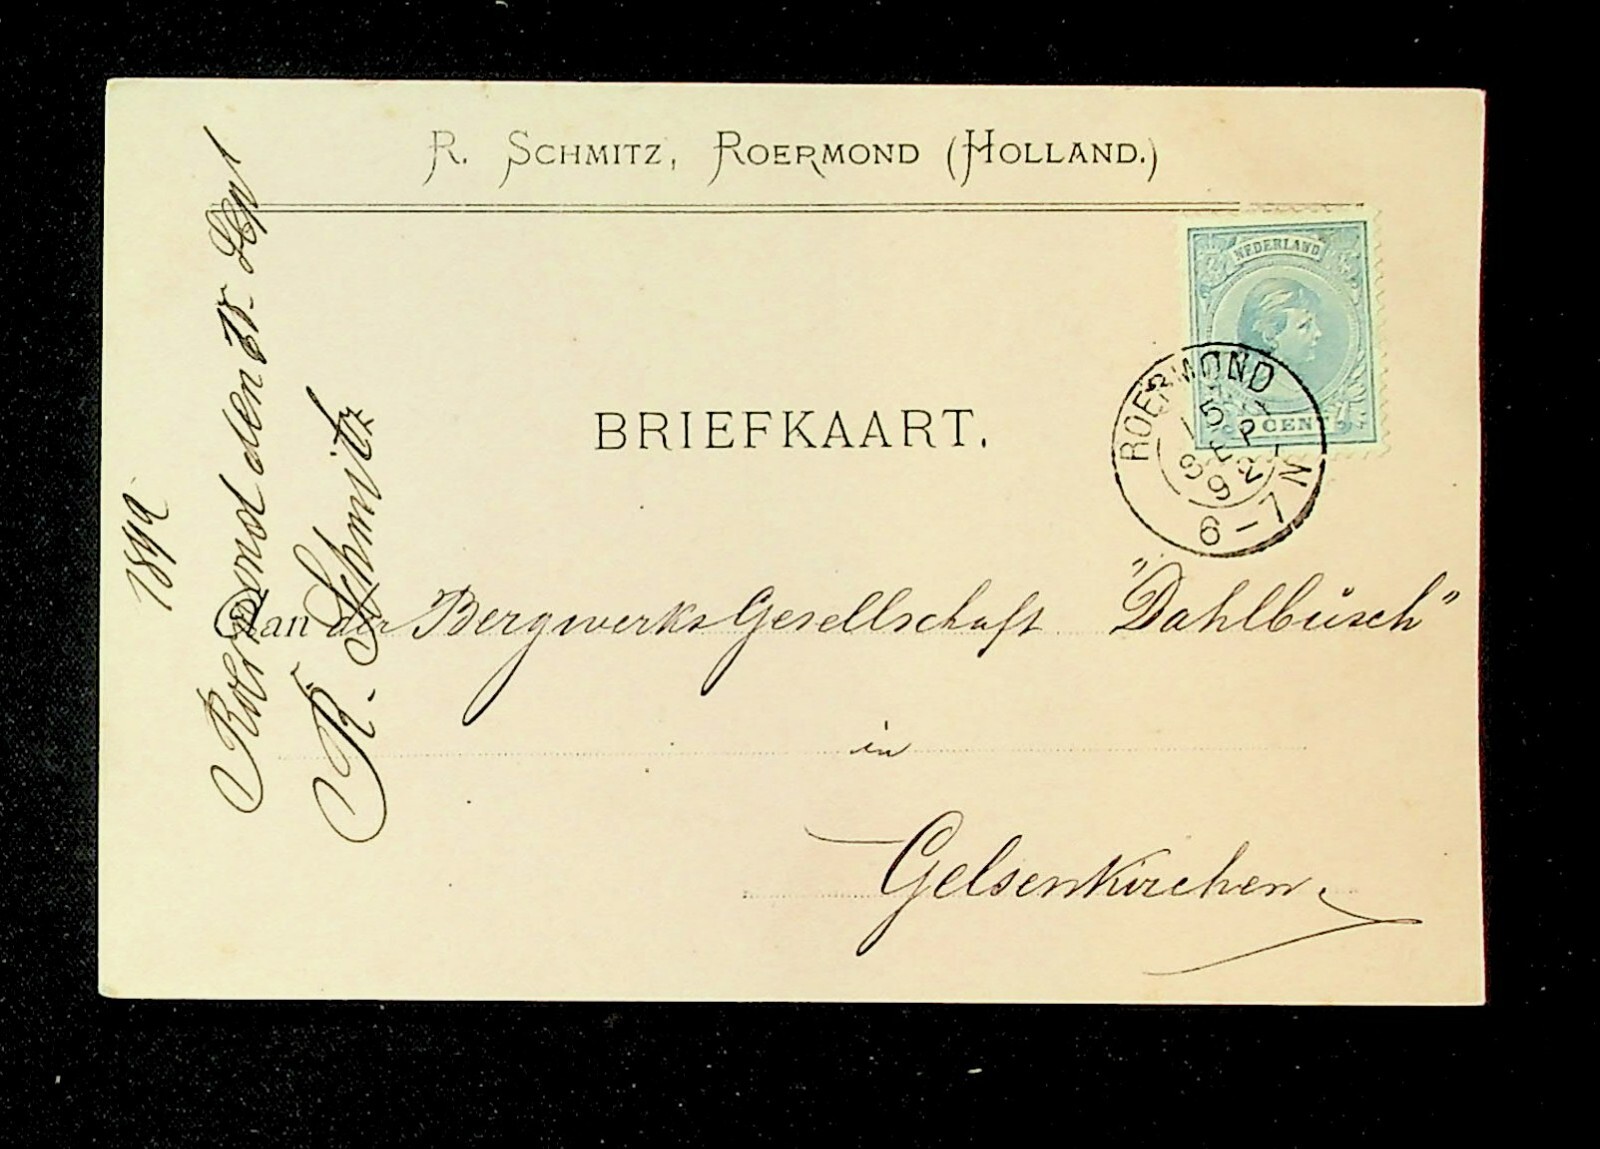 R. SCHMITZ, ROERMOND (HOLLAND.)
NEDERLAND
CENT
ROERMOND
15 SEP
92
6-7 N
BRIEFKAART.
Aan der Bergwerks Gesellschaft "Dahlbusch"
in
Gelsenkirchen.
Roermond den Sept
1892
R. Schmitz